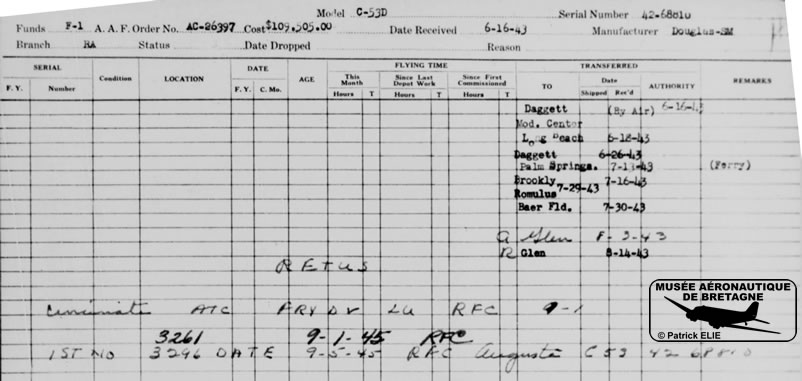 Model C-53D Serial Number 42-68810
Funds F-1 A. A. F. Order No. AC-26397 Cost $109,505.00 Date Received 6-16-43 Manufacturer Douglas-SM
Branch RA Status Date Dropped Reason
SERIAL Condition LOCATION DATE AGE FLYING TIME TRANSFERRED REMARKS
This Month Since Last Depot Work Since First Commissioned TO Date AUTHORITY
F. Y. Number F. Y. C. Mo. Hours T Hours T Hours T Shipped Rec'd
Daggett (By Air) 6-16-43
Mod. Center
Long Beach 6-18-43
Daggett 6-26-43
Palm Springs. 7-13-43 (Ferry)
Brookly 7-16-43
Romulus 7-29-43
Baer Fld. 7-30-43
A Glen 8-3-43
R Glen 8-14-43
RETUS
Cincinnati ATC FRY DV LU RFC 9-1
3261 9-1-45 RFC
1ST NO 3296 DATE 9-5-45 RFC Augusta C53 42 68810
MUSÉE AÉRONAUTIQUE
DE BRETAGNE
© Patrick ELIE